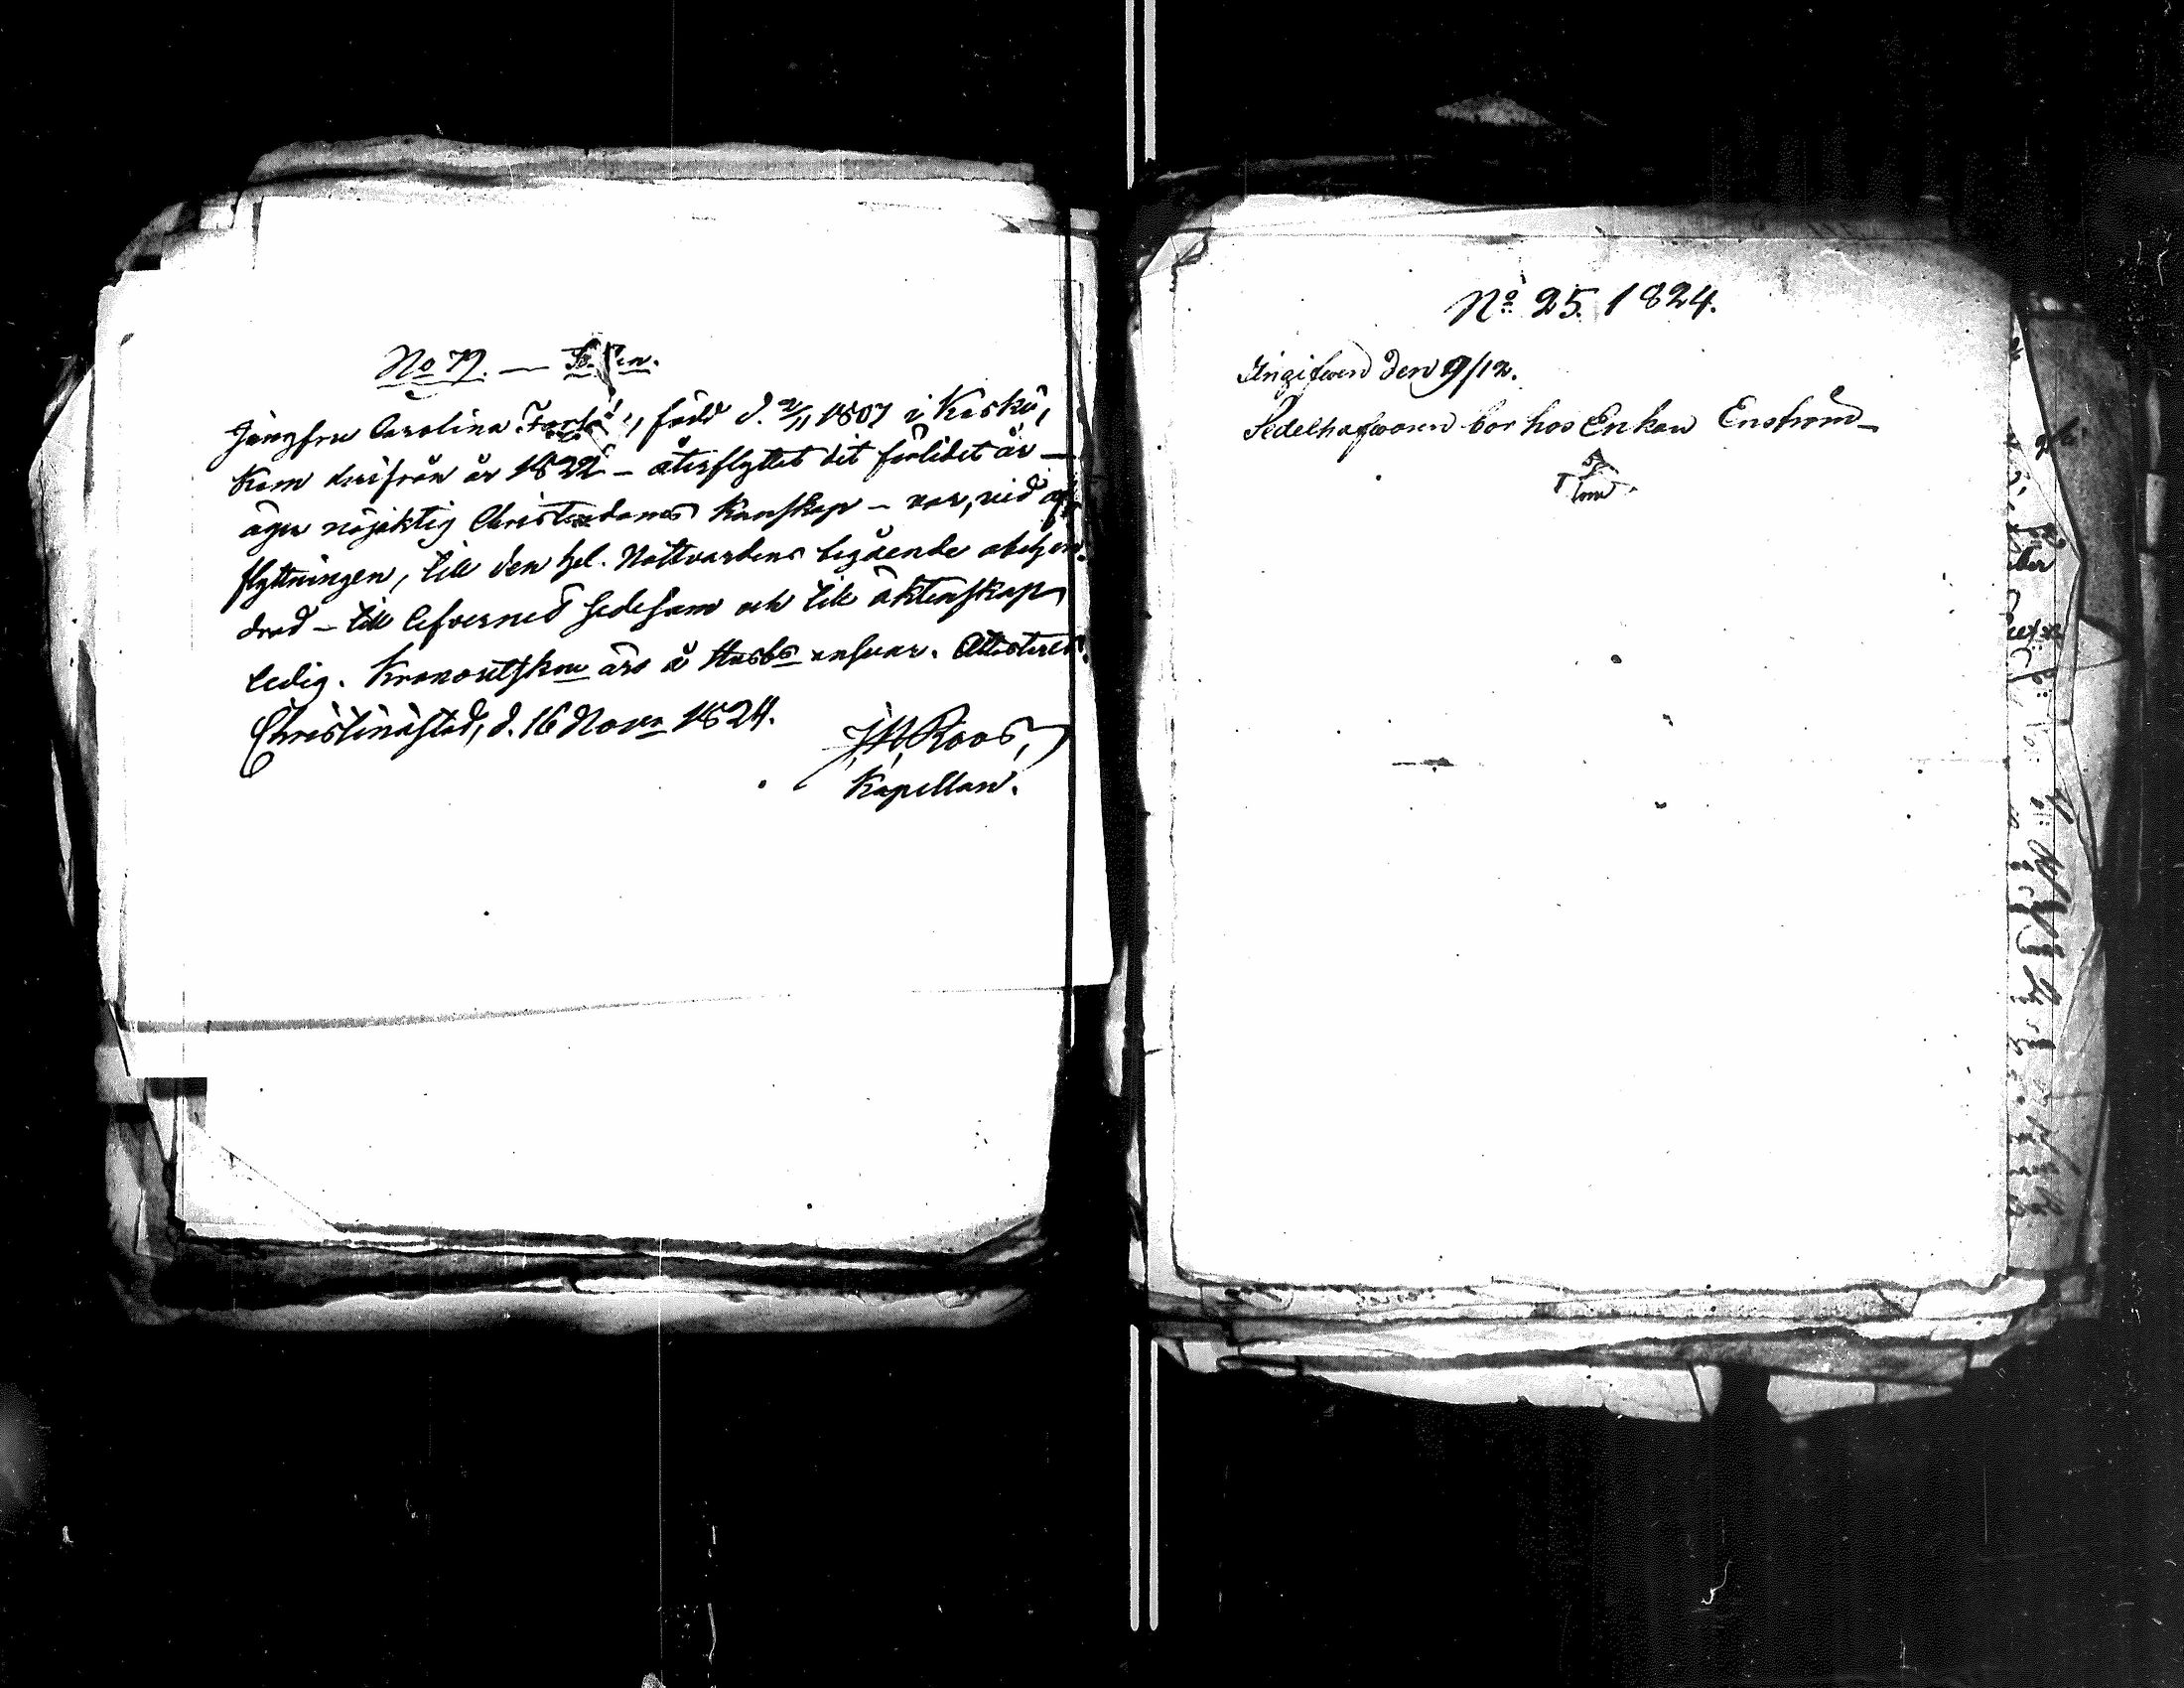 No 77. —
Jungfru Carolina, född d. 2/11 1807 i Kaskö,
kom derifrån år 1822 – återflyttet dit förlidet år –
äger nöjaktig Christendoms kunskap – var, vid af-
flyttningen, till den hel. Nattvardens begående obehin-
drad – till lefvernet sedesam och till äktenskap
ledig. äro å ansvar. Attesterar.
Christinæstad, d. 16 Novr 1824.
Roos,
Kapellan.
No 25. 1824.
Ingifven den 9/12.
Sedelhafvaren bor hos Enkan Enström